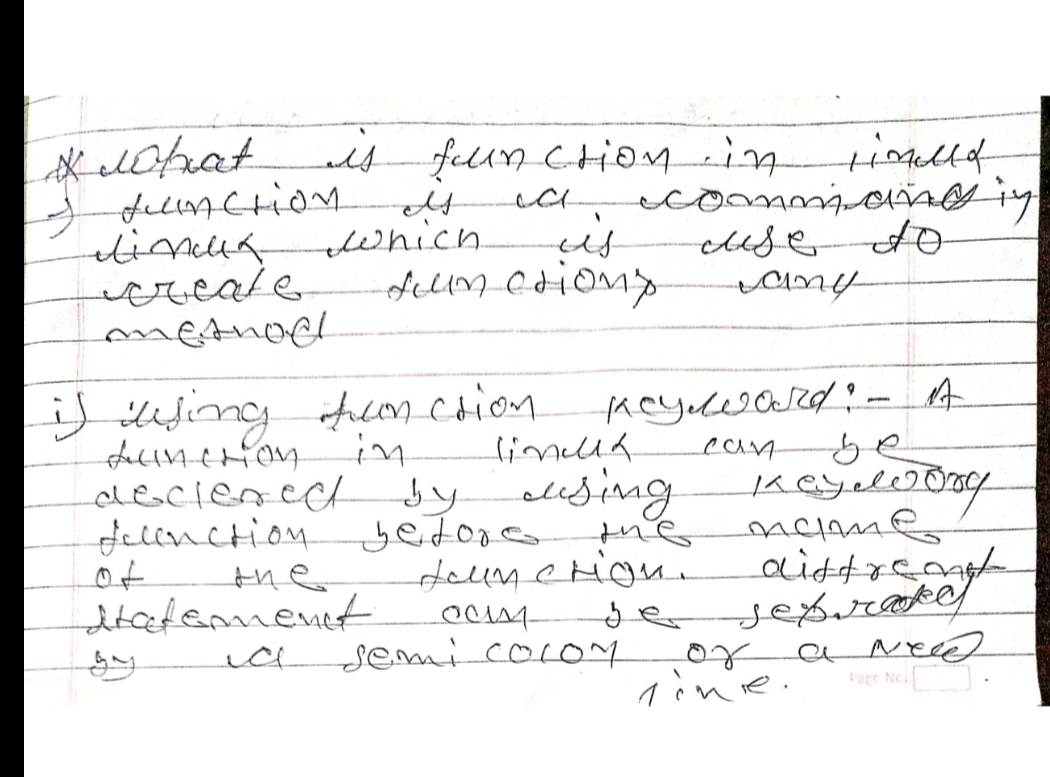 * What is function in linux
→ function is a command in
linux which is use to
create functions any
method
i) Using function keyword :- A
function in linux can be
declered by using keyword
function before the name
of the function. diffrent
statement can be seprated
by a semi colon or a new
line.
Page No.